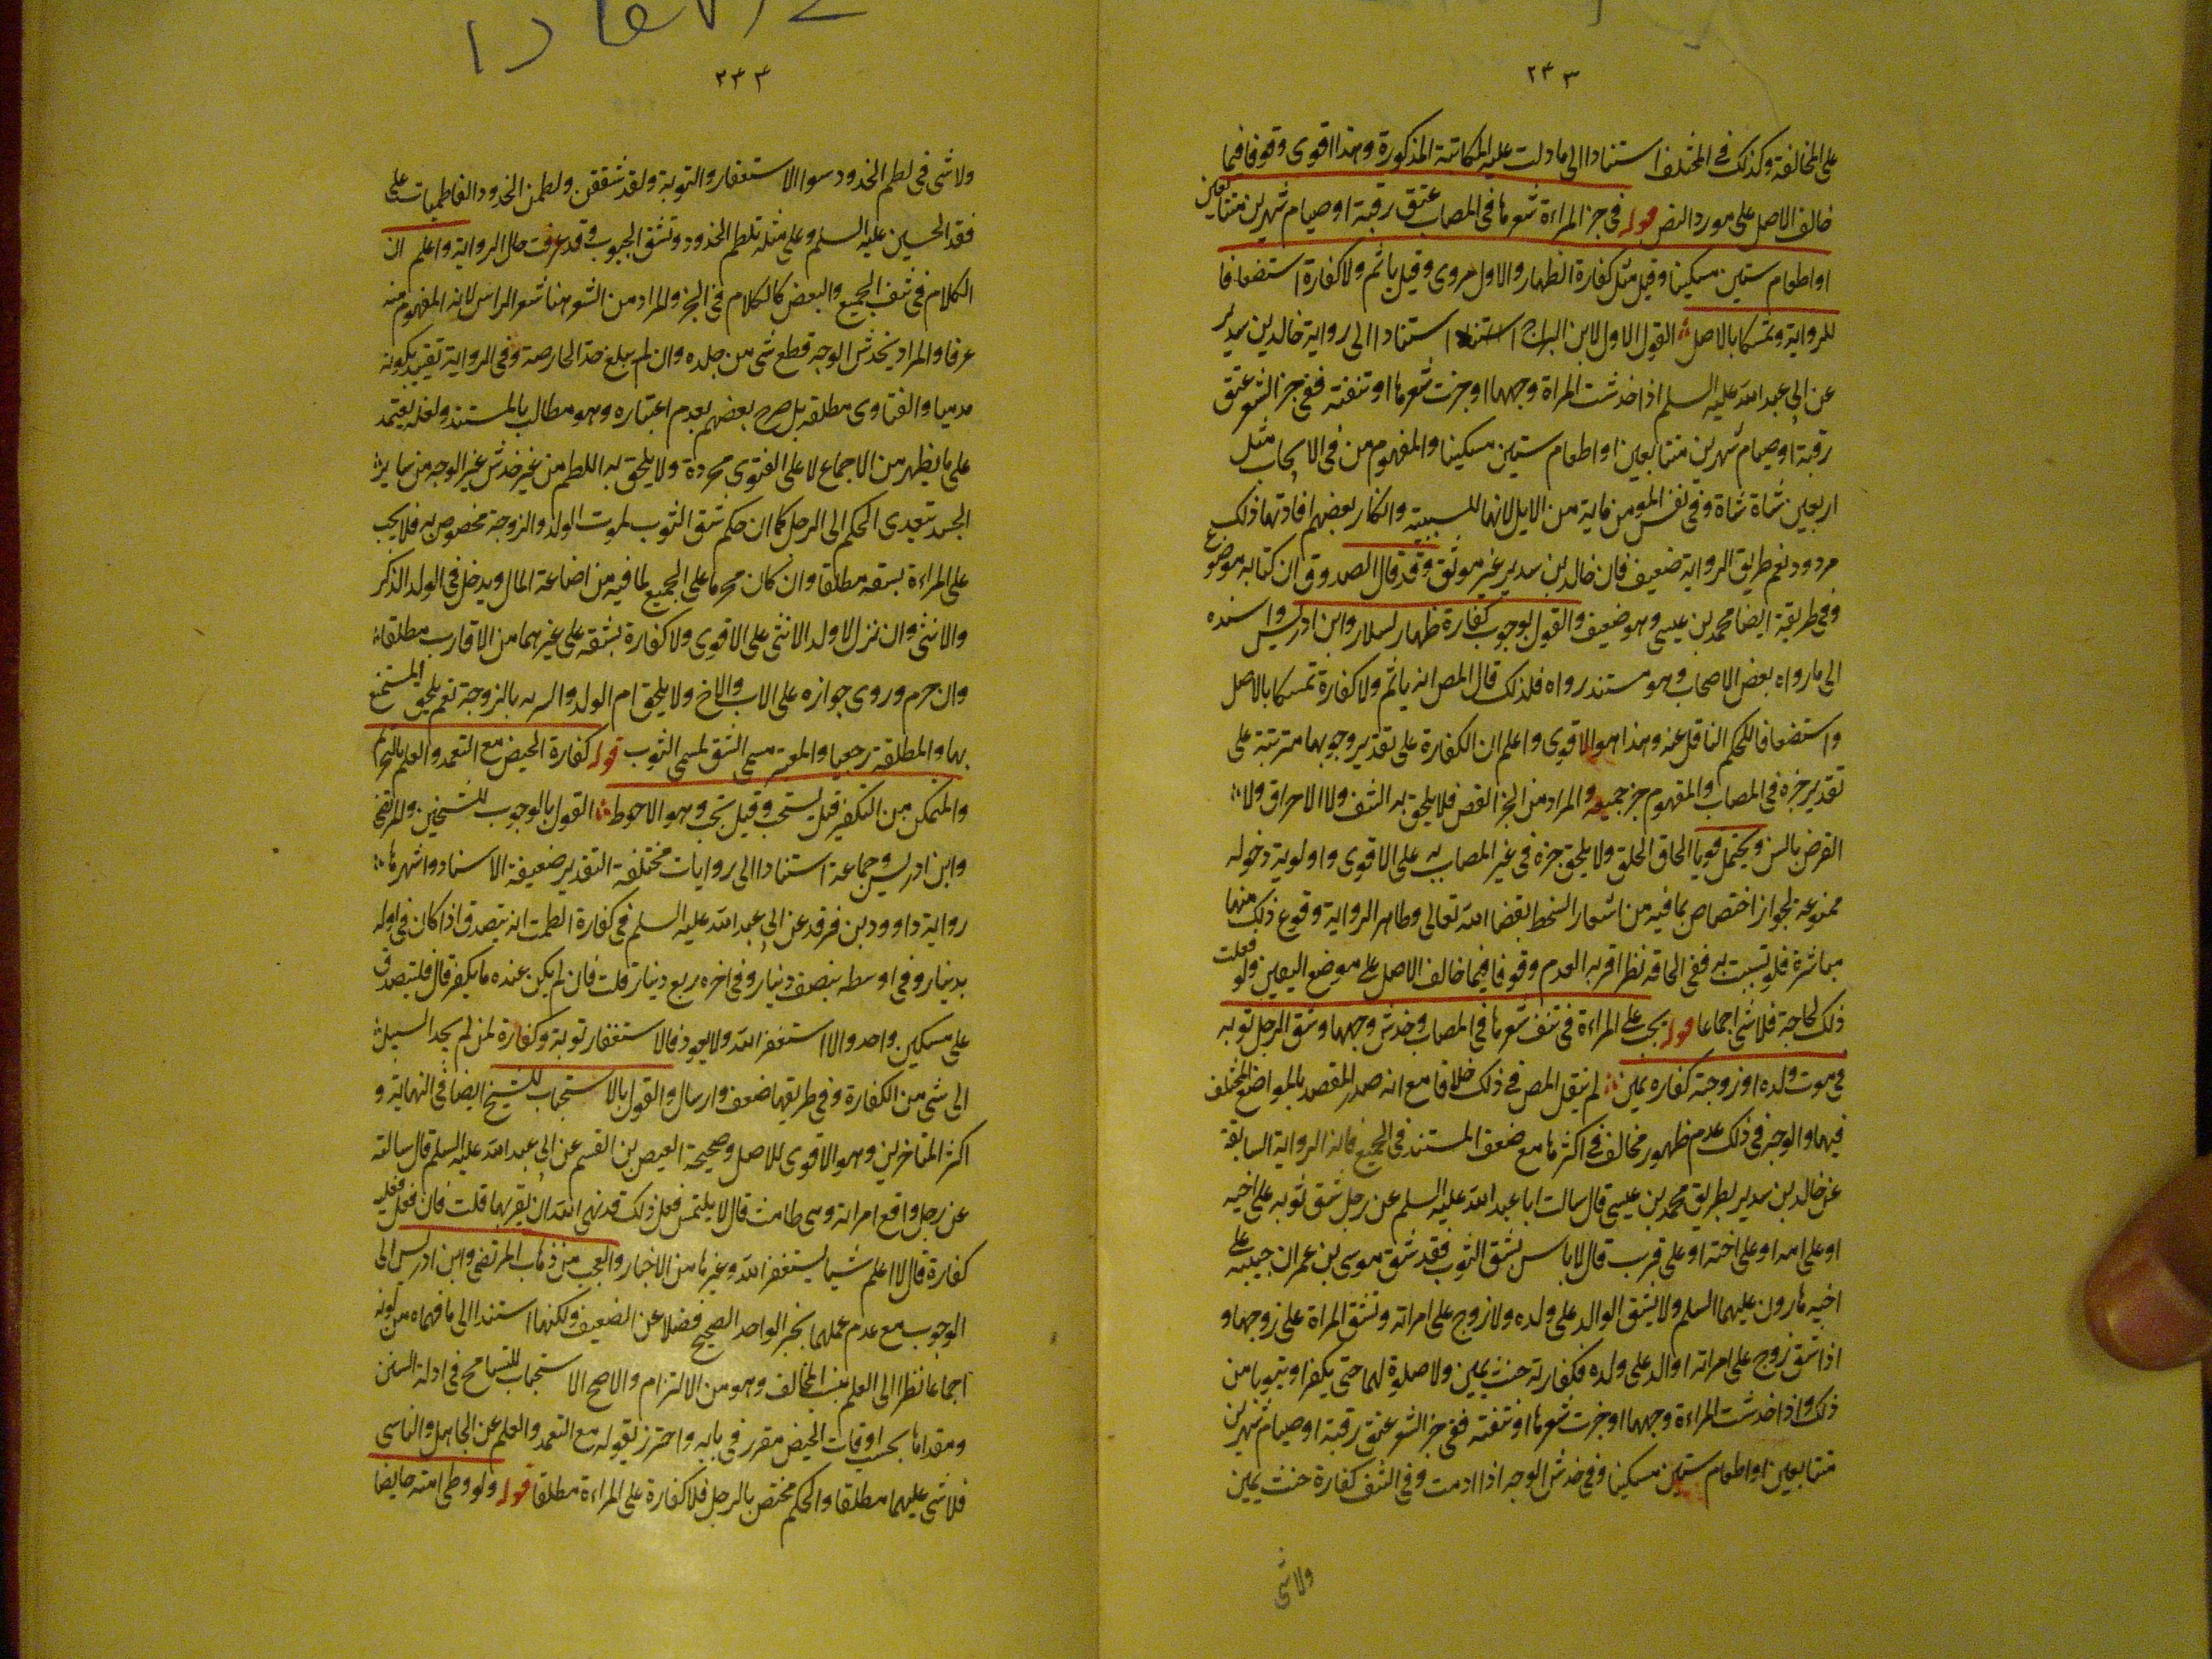 ٢٤٣
على المخالفة وكذلك في المختلف استنادا الى ما دلت عليه المكاتبة المذكورة وهذا اقوى وقوفا فيما
خالف الاصل على مورد النص قوله في جز المراءة شعرها في المصاب عتق رقبة او صيام شهرين متتابعين
او اطعام ستين مسكينا وقيل مثل كفارة الظهار والاول مروى وقيل ياثم ولا كفارة استضعافا
للرواية وتمسكا بالاصل القول الاول لابن البراج استنادا الى رواية خالد بن سدير
عن ابى عبد الله عليه السلم اذا خدشت المراة وجهها او جزت شعرها او نتفته ففي جز الشعر عتق
رقبة او صيام شهرين متتابعين او اطعام ستين مسكينا والمفهوم من في الايجاب مثل
اربعين شاة شاة وفي نفس المومن ماية من الابل لانها للسببية وانكار بعضهم افادتها ذلك
مردود نعم طريق الرواية ضعيف فان خالد بن سدير غير موثق وقد قال الصدوق ان كتابه موضوع
وفي طريقه ايضا محمد بن عيسى وهو ضعيف والقول بوجوب كفارة ظهار لسلار وابن ادريس واسنده
الى ما رواه بعض الاصحاب وهو مستند رواه فلذلك قال المص انه ياثم ولا كفارة تمسكا بالاصل
واستضعافا للحكم الناقل عنه وهذا هو الاقوى واعلم ان الكفارة على تقدير وجوبها مترتبة على
تقدير جزه في المصاب والمفهوم جز جميعه والمراد من الجز القص فلا يلحق به النتف ولا الاحراق ولا
القرض بالسن ويحتمل قويا الحاق الحلق ولا يلحق جزه في غير المصاب به على الاقوى واولوية دخوله
ممنوعة لجواز اختصاص بما فيه من اشعار السخط بقضا الله تعالى وظاهر الرواية وقوع ذلك منها
مباشرة فلو تسببت به ففي الحاقه نظر اقربه العدم وقوفا فيما خالف الاصل على موضع اليقين ولو فعلت
ذلك لحاجة فلا شى اجماعا قوله يجب على المراءة في نتف شعرها في المصاب وخدش وجهها وشق الرجل ثوبه
في موت ولده او زوجته كفاره يمين لم ينقل المص في ذلك خلافا مع انه صدر المقصد بالمواضع المختلف
فيها والوجه في ذلك عدم ظهور مخالف في اكثرها مع ضعف المستند في الجميع فانه الرواية السابقة
عن خالد بن سدير بطريق محمد بن عيسى قال سالت ابا عبد الله عليه السلم عن رجل شق ثوبه على اخيه
او على امه او على اخته او على قرب قال لا باس بشق الثوب فقد شق موسى بن عمران جيبه على
اخيه هارون عليهما السلم ولا يشق الوالد على ولده ولا زوج على امراته وتشق المراة على زوجها و
اذا شق زوج على امراته او الد على ولده فكفارته حنث يمين ولا صلوة لهما حتى يكفرا ويتوبا من
ذلك واذا خدشت المراءة وجهها او جزت شعرها او نتفته ففي جز الشعر عتق رقبة او صيام شهرين
متتابعين او اطعام ستين مسكينا وفي خدش الوجه اذا ادمت وفي النتف كفارة حنث يمين
ولا شى
٢٤٤
ولا شى في لطم الخدود سوا الاستغفار والتوبة ولقد شققن ولطمن الخدود الفاطميات على
فقد الحسين عليه السلم وعلى مثله تلطم الخدود وتشق الجيوب وقد عرفت حال الرواية واعلم ان
الكلام في نتف الجميع والبعض كالكلام في الجز والمراد من الشعر هنا شعر الراس لانه المفهوم منه
عرفا والمراد بخدش الوجه قطع شى من جلده وان لم يبلغ حد الحارصة وفي الرواية تقييد بكونه
مدميا والفتاوى مطلقة بل صرح بعضهم بعدم اعتباره وهو مطالب بالمستند ولعله يعتمد
على ما يظهر من الاجماع لا على الفتوى مجردة ولا يلحق به اللطم من غير خدش غير الوجه من ساير
الجسد يتعدى الحكم الى الرجل كما ان حكم شق الثوب لموت الولد والزوجة مخصوص به فلا يجب
على المراءة بشقه مطلقا وان كان محرما على الجميع لما فيه من اضاعة المال ويدخل في الولد الذكر
والانثى وان نزل لا ولد الانثى على الاقوى ولا كفارة بشقه على غيرهما من الاقارب مطلقا
وان حرم وروى جوازه على الاب والاخ ولا يلحق ام الولد والسريه بالزوجة نعم يلحق المستمتع
بها والمطلقة رجعيا والمعتبر مسمى الشق لمسمى الثوب قوله كفارة الحيض مع التعمد والعلم بالتحريم
والتمكن من التكفير قيل يستحب وقيل يجب وهو الاحوط القول بالوجوب للشيخين والمرتضى
وابن ادريس وجماعة استنادا الى روايات مختلفة التقدير ضعيفة الاسناد واشهرها
رواية داوود بن فرقد عن ابى عبد الله عليه السلم في كفارة الطمث انه يتصدق اذا كان في اوله
بدينار وفي اوسطه بنصف دينار وفي اخره ربع دينار قلت فان لم يكن عنده ما يكفر قال فليتصدق
على مسكين واحد والا استغفر الله ولا يعود فالاستغفار توبة وكفارة لمن لم يجد السبيل
الى شى من الكفارة وفي طريقها ضعف وارسال والقول بالاستحباب للشيخ ايضا في النهاية و
اكثر المتاخرين وهو الاقوى للاصل وصحيحة العيص بن القسم عن ابى عبد الله عليه السلم قال سالته
عن رجل واقع امراته وهى طامث قال لا يلتمس فعل ذلك قد نهى الله ان يقربها قلت فان فعل فعليه
كفارة قال لا اعلم شيا يستغفر الله وغيرها من الاخبار والعجب من ذهاب المرتضى وابن ادريس الى
الوجوب مع عدم عملهما بخبر الواحد الصحيح فضلا عن الضعيف ولكنهما استندا الى ما فهماه من كونه
اجماعا نظرا الى العلم بنسب المخالف وهو من الالتزام والاصح الاستحباب للتسامح في ادلة السنن
ومقدارها بحسب اوقات الحيض مقرر في بابه واحترز بقوله مع التعمد والعلم عن الجاهل والناسى
فلا شى عليهما مطلقا والحكم مختص بالرجل فلا كفارة على المراءة مطلقا قوله ولو وطى امته حايضا